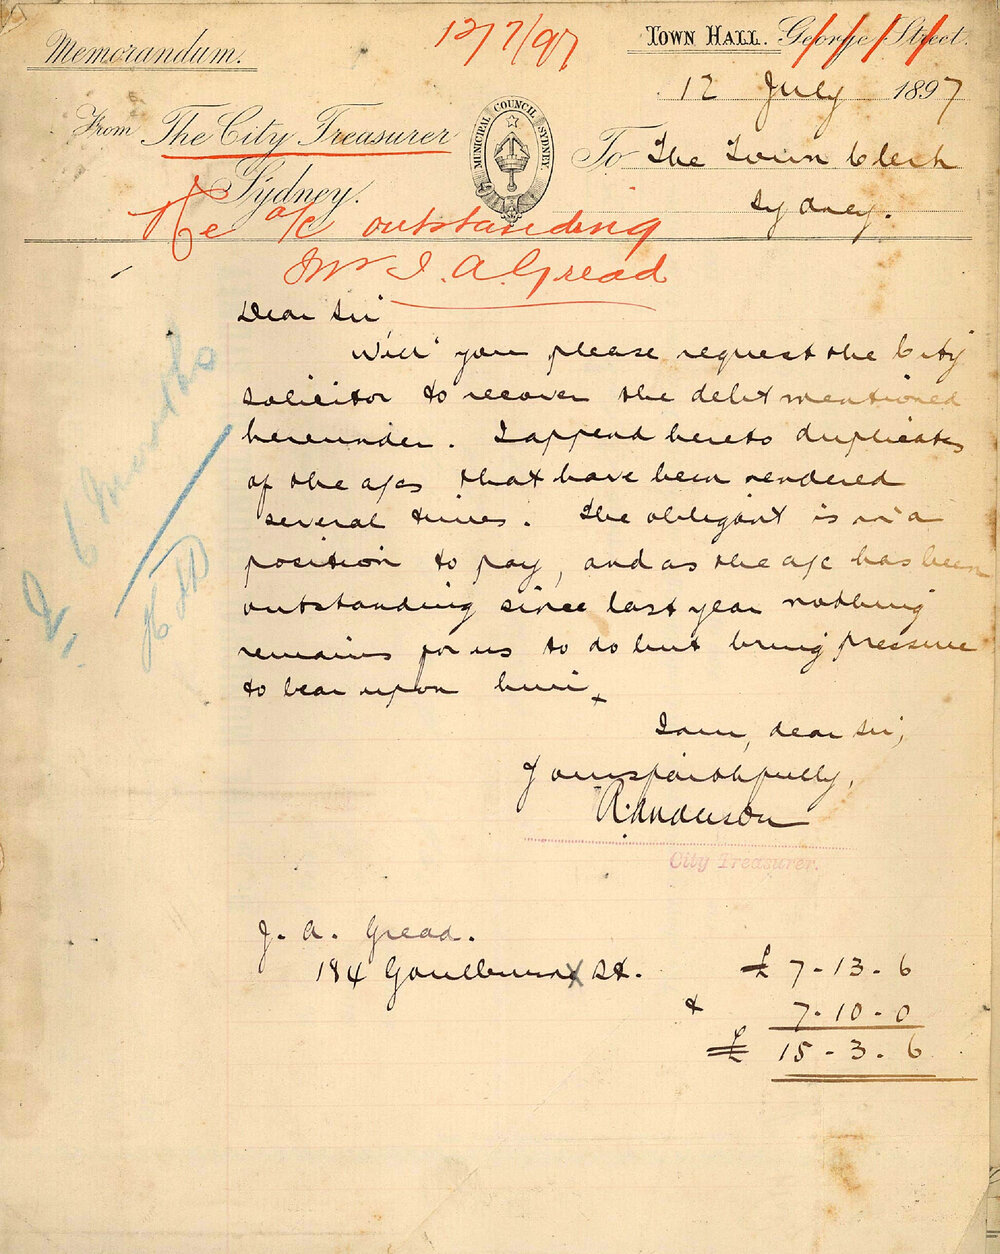 Memorandum.
12/7/97
TOWN HALL. George Street.
12 July 1897
From The City Treasurer
Sydney.
MUNICIPAL COUNCIL SYDNEY.
To The Town Clerk
Sydney.
Re a/c outstanding
Mr J. A. Gread
Dear Sir
Will you please request the City
Solicitor to recover the debt mentioned
hereunder. I append hereto duplicates
of the a/cs that have been rendered
several times. The obligant is in a
position to pay, and as the a/c has been
outstanding since last year nothing
remains for us to do but bring pressure
to bear upon him.
I am, dear Sir,
Yours faithfully,
R. Anderson
City Treasurer.
J. A. Gread.
184 Goulburn St. £ 7-13-6
& 7-10-0
£ 15-3-6